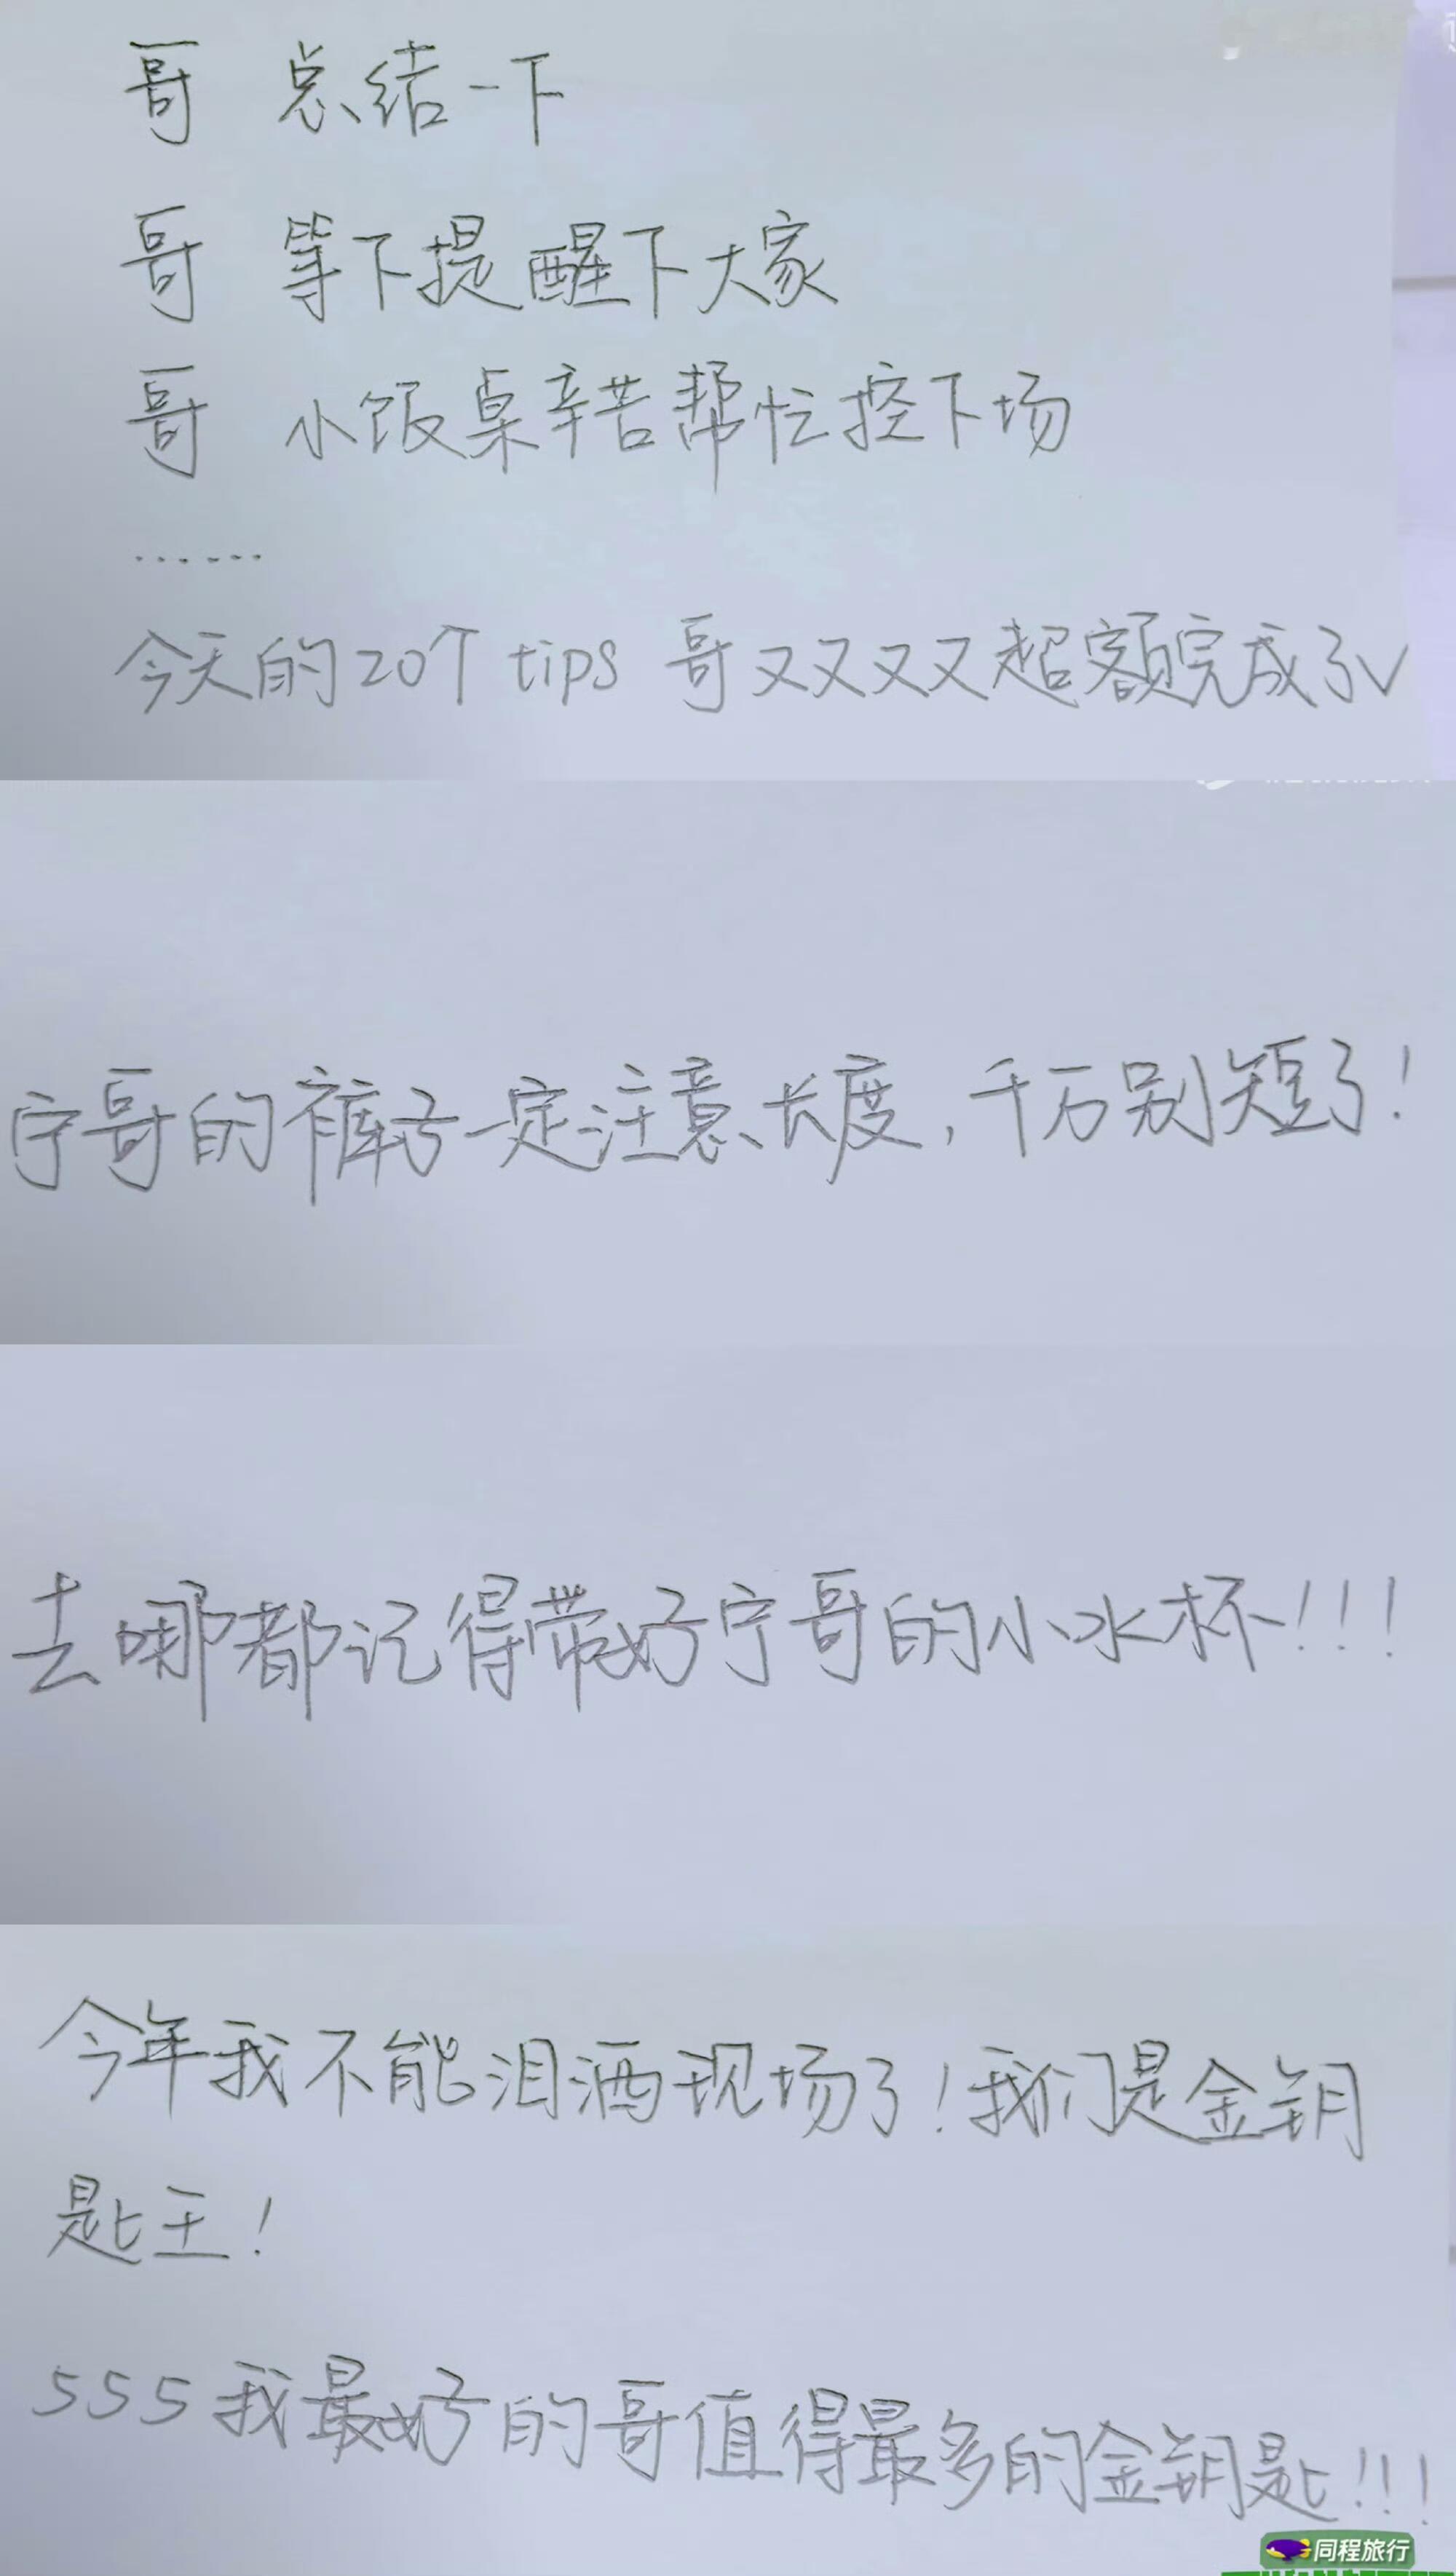 哥 总结一下
哥 等下提醒下大家
哥 小饭桌辛苦帮忙控下场
……
今天的20个 tips 哥又又又又超额完成了√
宁哥的裤子一定注意长度，千万别短了！
去哪都记得带好宁哥的小水杯！！！
今年我不能泪洒现场了！我们是金钥
匙王！
555我最好的哥值得最多的金钥匙！！！
同程旅行